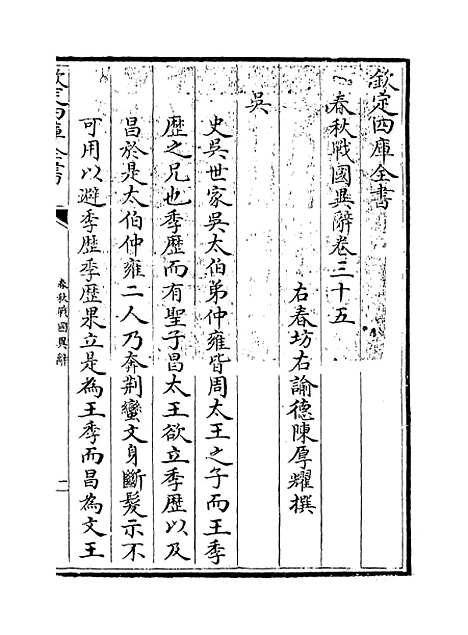 欽定四庫全書
春秋戰國異辭卷三十五
右春坊右諭德陳厚耀撰
吳
史吳世家吳太伯弟仲雍皆周太王之子而王季
歴之兄也季歴而有聖子昌太王欲立季歴以及
昌於是太伯仲雍二人乃奔荆蠻文身斷髮示不
可用以避季歴季歴果立是為王季而昌為文王
欽定四庫全書
春秋戰國異辭